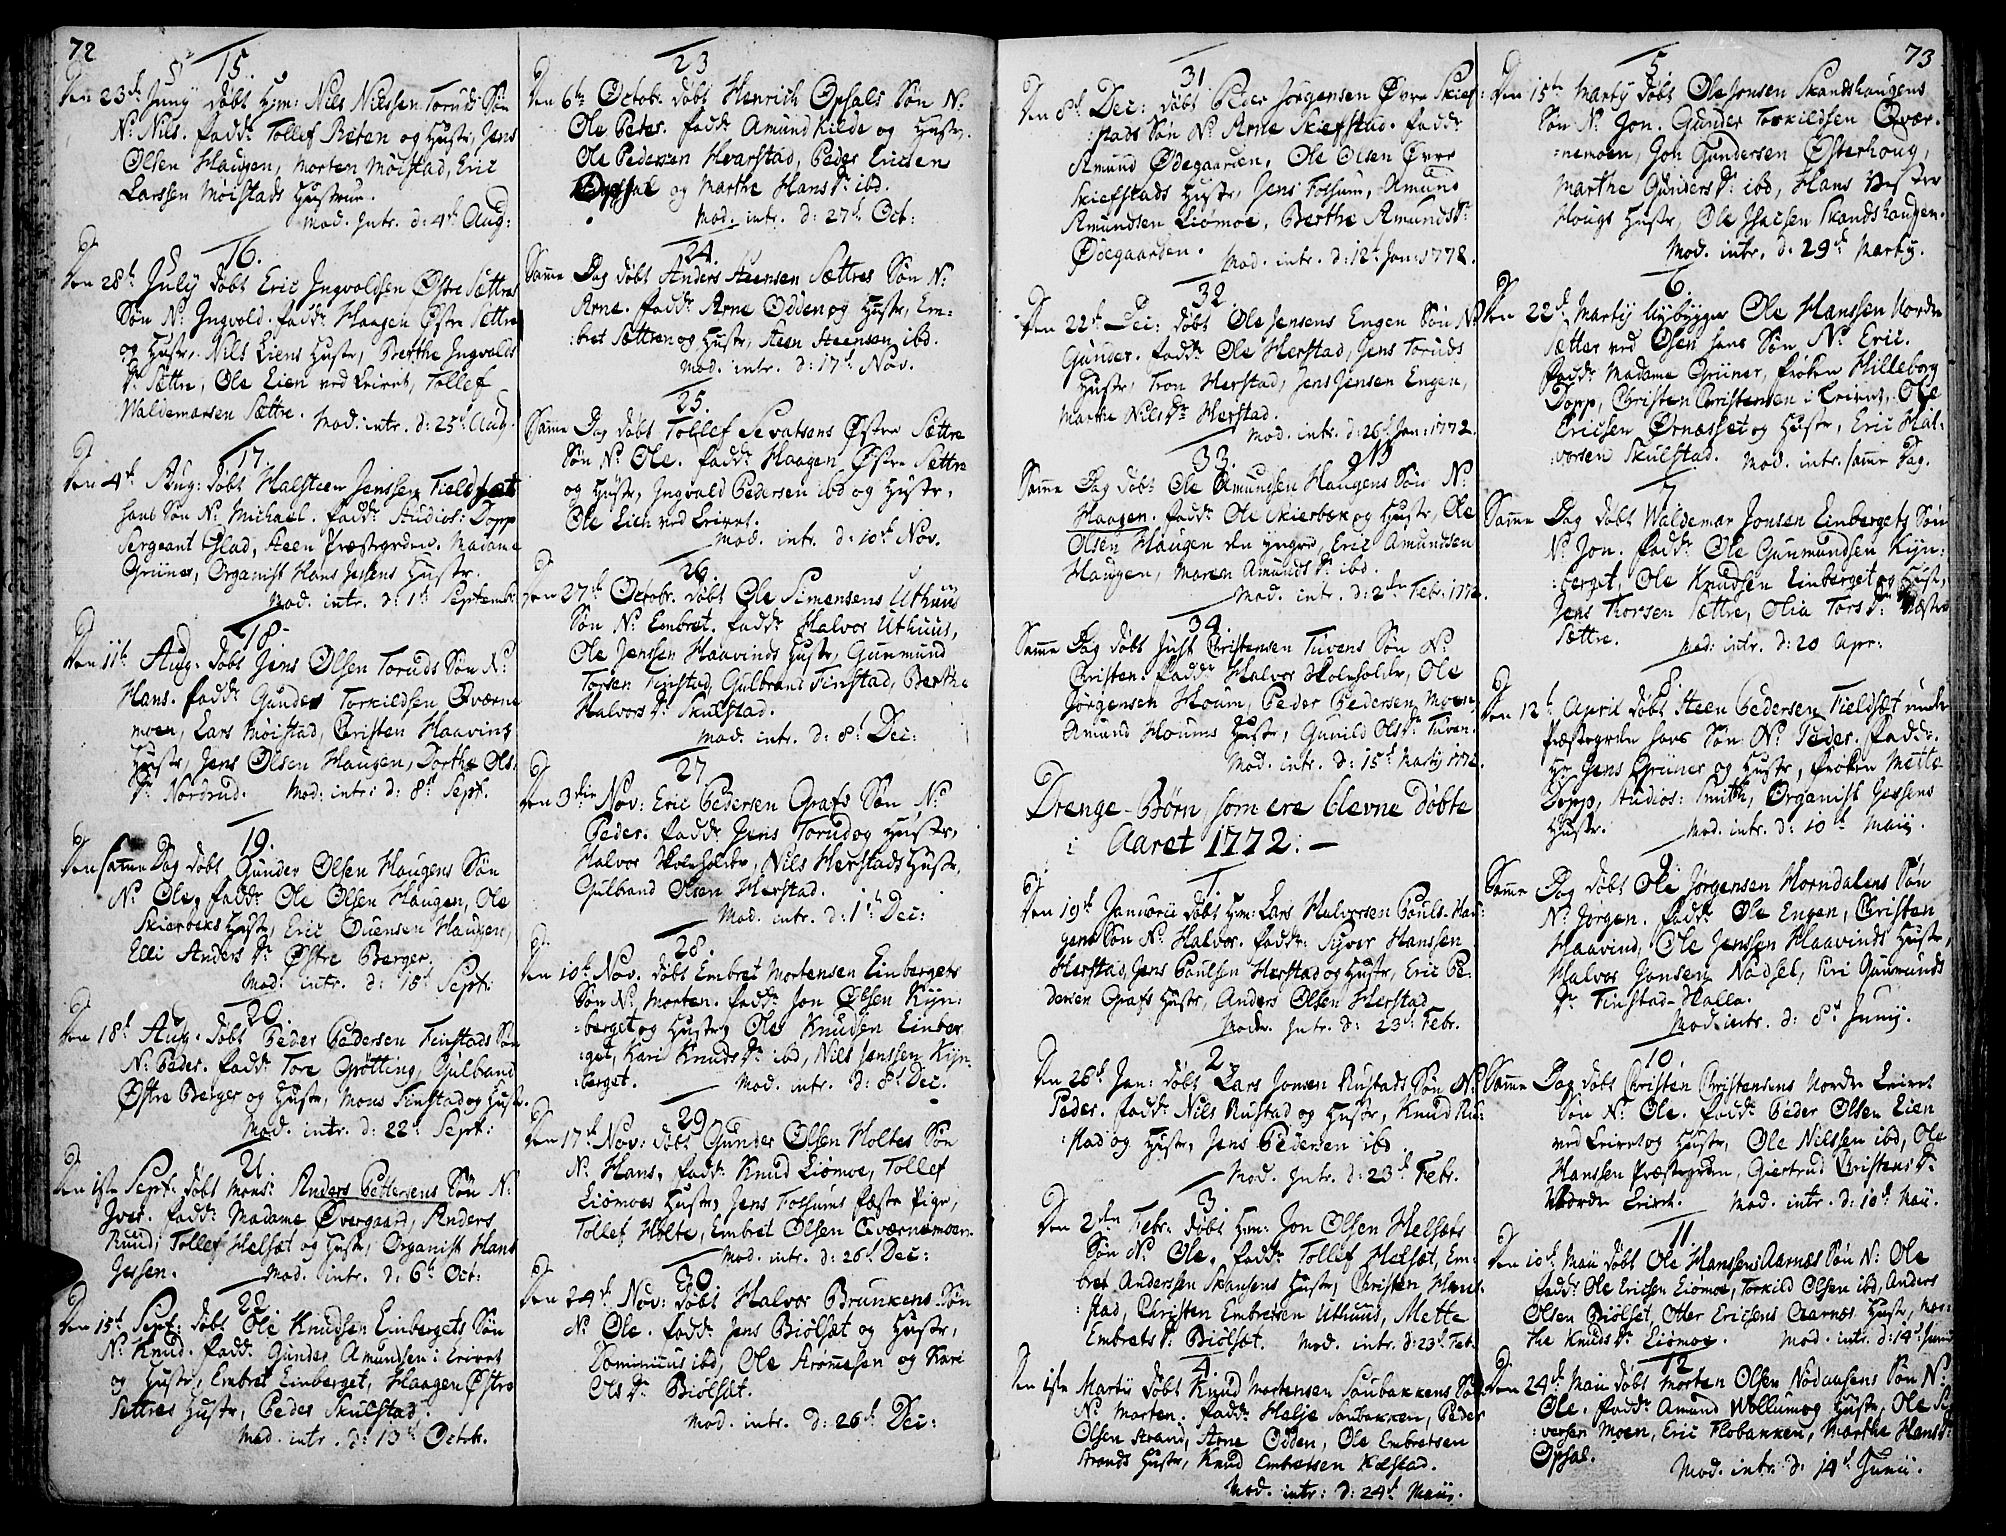 72
15.
Den 23de Junij døbt Hm: Nils Nilssen Toruds Søn
No Nils. fadde Tollef Beten og Hustr, Jens
Olsen Haugen, Morten Moistad, Eric
Larssen Moistads Hustrue.
Mad. Intr. d: 4d Aug:
16.
Den 28d July døbt Eric Ingvoldsen Østre Sættres
Søn No Ingvold. fadde Haagen Østre Sættre
og Hustr, Nils Liens Hustr, Berthe Ingvolds
Dr Sættre, Ole Lien ved Leiret, Tollef
Waldemarsen Sættre. Mad. intr. d: 25d Aug.
17.
Den 4d Aug: døbt Halsteen Jenssen Fieldsæt
hans Søn No Michael. fadde Studios: Dopp
Sergeant Glad, Steen Præstegrden. Madame
Grüner, Organist Hans Jessens Hustr.
Mad. intr. d: 1d Septemb.
18.
Den 11te Aug. døbt Jens Olsen Toruds Søn No
Hans. fadde Gunder Torkildsen Qværne
moen, Lars Moistad, Christen Haavinds
Hustr, Jens Olsen Haugen, Dorthe Ols:
Dr Nordrud. Mad: intr: d: 8d Sept.
19.
Den samme Dag døbt Gunder Olsen Haugens Søn
No Ole, fadde Ole Olsen Haugen, Ole
Skierbeks Hustr, Eric Evensen Haugen,
Elli Anders Dr Østre Berger.
Mad: intr. d: 15d Sept:
20.
Den 18d Aug. døbt Peder Pedersen Finstads Søn
No Peder. fadde Tore Grøtting, Gulbrand
Østre Berger og Hustr, Mons Finstad og Hustr.
Mad. intr. d: 22d Sept:
21
Den 1ste Sept: døbt Mons: Anders Pettersens Søn N:
Iver. fadde Madame Øvergaard, Anders
Rund, Tollef Helsæt og Hustr, Organist Hans
Jessen. Mad. intr. d: 6te Oct:
22
Den 15d Sept: døbt Ole Knudsen Einbergets Søn
No Knud. fadde Gunder Amundsen i Leiret
og Hustr, Embret Einberget, Haagen Østre
Sættres Hustr, Peder Skulstad.
Mad. intr. d: 13d Octobr.
23
Den 6te Octobr. døbt Henrich Opsals Søn No
Ole Peder. fadde Amund Kilde og Hustr,
Ole Pedersen Hvarstad, Peder Ericsen
Opsal og Marthe Hans Dr ibd.
Mad. intr. d: 27d Oct:
24.
Samme Dag døbt Anders Steensen Sættres Søn No
Arne. fadde Arne Odden og Hustr, Em-
:bret Sættren og Hustr, Steen Steensen ibd.
Mad. intr. d: 17d Nov.
25.
Samme Dag døbt Tollef Sevatsens Østre Sættre
Søn No Ole. fadde Haagen Østre Sættre
og Hustr, Ingvald Pedersen ibd og Hustr,
Ole Lien ved Leiret.
Mad. intr. d: 10d Nov.
26
Den 27d Octobr. døbt Ole Simensens Uthuus
Søn No Embret. fadde Halvor Uthuus,
Ole Jenssen Haavinds Hustr, Gunmund
Torsen Finstad, Gulbrand Finstad, Berthe
Halvors Dr Skulstad.
Mad. intr. d: 8d Dec:
27
Den 3die Nov: Eric Pedersen Grafs Søn No
Peder. fadde Jens Torud og Hustr,
Halvor Skoleholder, Nils Herstads Hustr,
Gulbrand Olsen Herstad.
Mad. intr. d: 1d Dec:
28.
Den 10d Nov. døbt Embret Mortensen Einbergets
Søn No Morten. fadde Jon Olsen Kyn:
:berget og Hustr, Ole Knudsen Einber
:get, Kari Knuds Dr ibd, Nils Jenssen Kyn-
berget. Mad. intr. d: 8d Dec.
29
Den 17d Nov: døbt Gunder Olsen Holtes Søn
No Hans. fadde Knud Liømoe, Tollef
Liømoes Hustr, Jens Fossums fæste Pige,
Tollef Holte, Embret Olsen Qværnemoen.
Mad. intr. d: 26d Dec:
30
Den 24d Nov: døbt Halvor Brunkens Søn
No Ole. fadde Jens Biølsæt og Hustr,
Dominicus ibd, Ole Aronesen og Kari
Ols Dr Biølsæt.
Mad. intr. d: 26d Dec:
31
Den 8d Dec: døbt Peder Jorgensen Øvre Skief:
:stads Søn No Arne Skiefstad. fadde
Amund Ødegaarden, Ole Olsen Øvre
Skiefstads Hustr, Jens Fossum, Amund
Amundsen Liømoe, Berthe Amunds Dr
Ødegaarden. Mad. intr. d: 12te Jan: 1772.
32.
Den 22d Dec: døbt Ole Jensens Engen Søn No
Gunder. fadde Ole Herstad, Jens Toruds
Hustr, Tron Herstad, Jens Jensen Engen,
Marthe Nils Dr Herstad.
Mad. intr. d: 26d Jan: 1772.
33.
Samme Dag døbt Ole Amundsen Haugens Søn No
Haagen. fadde Ole Skierbæk og Hustr, Ole
Olsen Haugen den yngre, Eric Amundsen
Haugen, Maren Amunds Dr ibd.
Mad. intr. d: 2den Febr. 1772.
34.
Samme Dag døbt Just Christensen Tuvens Søn No
Christen. fadde Halvor Skoleholder, Ole
Jørgensen Houm, Peder Pedersen Moen,
Amund Houms Hustr, Gunild Ols Dr Tuven.
Mad. intr. d: 15d Martij 1772.
Drenge-Børn som ere blevne døbte
i Aaret 1772:-
1
Den 19d Januarii døbt Hm: Lars Halvorsen Pouls-Hau:
gens Søn No Halvor. fadde: Syver Hanssen
Herstad, Jens Poulsen Herstad og Hustr, Eric Pe-
dersen Grafs Hustr, Anders Olsen Herstad
Madr. Intr. d: 23d Febr.
2.
Den 26d Jan: døbt Lars Jonsen Rustads Søn No
Peder. fadde Nils Rustad og Hustr, Knud Ru:
:stad og Hustr, Jens Pedersen ibd
Mad. Intr. d: 23d Febr.
3.
Den 2den Febr. døbt Hm: Jon Olsen Helsæts
Søn No Ole. fadde Tollef Helsæt, Em-
bret Anderssen Skansens Hustr, Christen Hems-
:stad, Christen Embretsen Uthuus, Mette
Embrets Dr Biølsæt. Mad. intr. d: 23d Feb.
4.
Den 1ste Martij døbt Knud Mortensen Soubakkens Søn
No Morten. fadde Helje Soubakken, Peder
Olsen Strand, Arne Odden, Ole Embretsen
Strands Hustr, Knud Embretsen Kilstad.
Mad. intr: d: 24d Maij.
73
5
Den 15de Martij døbt Ole Jonsen Skandshaugens
Søn No Jon. Gunder Torkildsen Qvær-
:nemoen, Jon Gundersen Østerhoug,
Marthe Gunders Dr ibd, Hans Vester
Hougs Hustr, Ole Isacsen Skandshaugen.
Mad. intr. d: 29d Martij.
6.
Den 22d Martij Nybygger Ole Hanssen Nordre
Sætter ved Osen hans Søn No Eric.
fadde Madame Grüner, frøken Hilleborg
Dopp, Christen Christensen i Leiret, Ole
Ericsen Ørnesset og Hustr, Eric Hal-
:vorsen Skulstad. Mad. intr. samme Dag.
7
Samme Dag døbt Waldemar Jonsen Einbergets Søn
No Jon. fadde Ole Gunmundsen Kyn:
:berget, Ole Knudsen Einberget og Hustr,
Jens Thorsen Sættre, Olia Tors Dr Østre
Sættre. Mad: intr. d: 20 Apr:
8.
Den 12te April døbt Steen Pedersen Fieldsæt under
Præstegrden hans Søn No Peder. fadde:
Hr Jens Grüner og Hustr, frøken Mette
Dopp, Studios: Smith, Organist Jessens
Hustr. Mad. intr. d: 10d Maij.
9
Samme Dag døbt Ole Jørgensen Horndalens Søn
No Jørgen. fadde Ole Engen, Christen
Haavind, Ole Jenssen Haavinds Hustr,
Halvor Jonsen Nødset, Siri Gunmunds
Dr Finstad-Halla.
Mad. intr. d: 8d Junij.
10.
Samme Dag døbt Christen Christensens Nordre Leiret
Søn No Ole. fadde Peder Olsen Lien
ved Leiret og Hustr, Ole Nilssen ibd, Ole
Hanssen Præstegrden, Giertrud Christens Dr
Nordre Leiret. Mad. intr. d: 10d Maii.
11.
Den 10d Maii døbt Ole Hanssens Aarnæs Søn No: Ole
fadde Ole Ericsen Liømoe, Torkild Olsen ibd, Anders
Olsen Biølset, Oter Ericsens Aarnæs Hustr, Mar-
the Knuds Dr Liømoe. Mad. intr. d: 14d Junii
12
Den 24d Maii døbt Morten Olsen Nødaasens Søn No:
Ole. fadde Amund Wollum og Hustr, Ole
:versen Moen, Eric Flobakken, Marthe Hans Dr
Opsal. Mad. intr. d: 14d Junii.